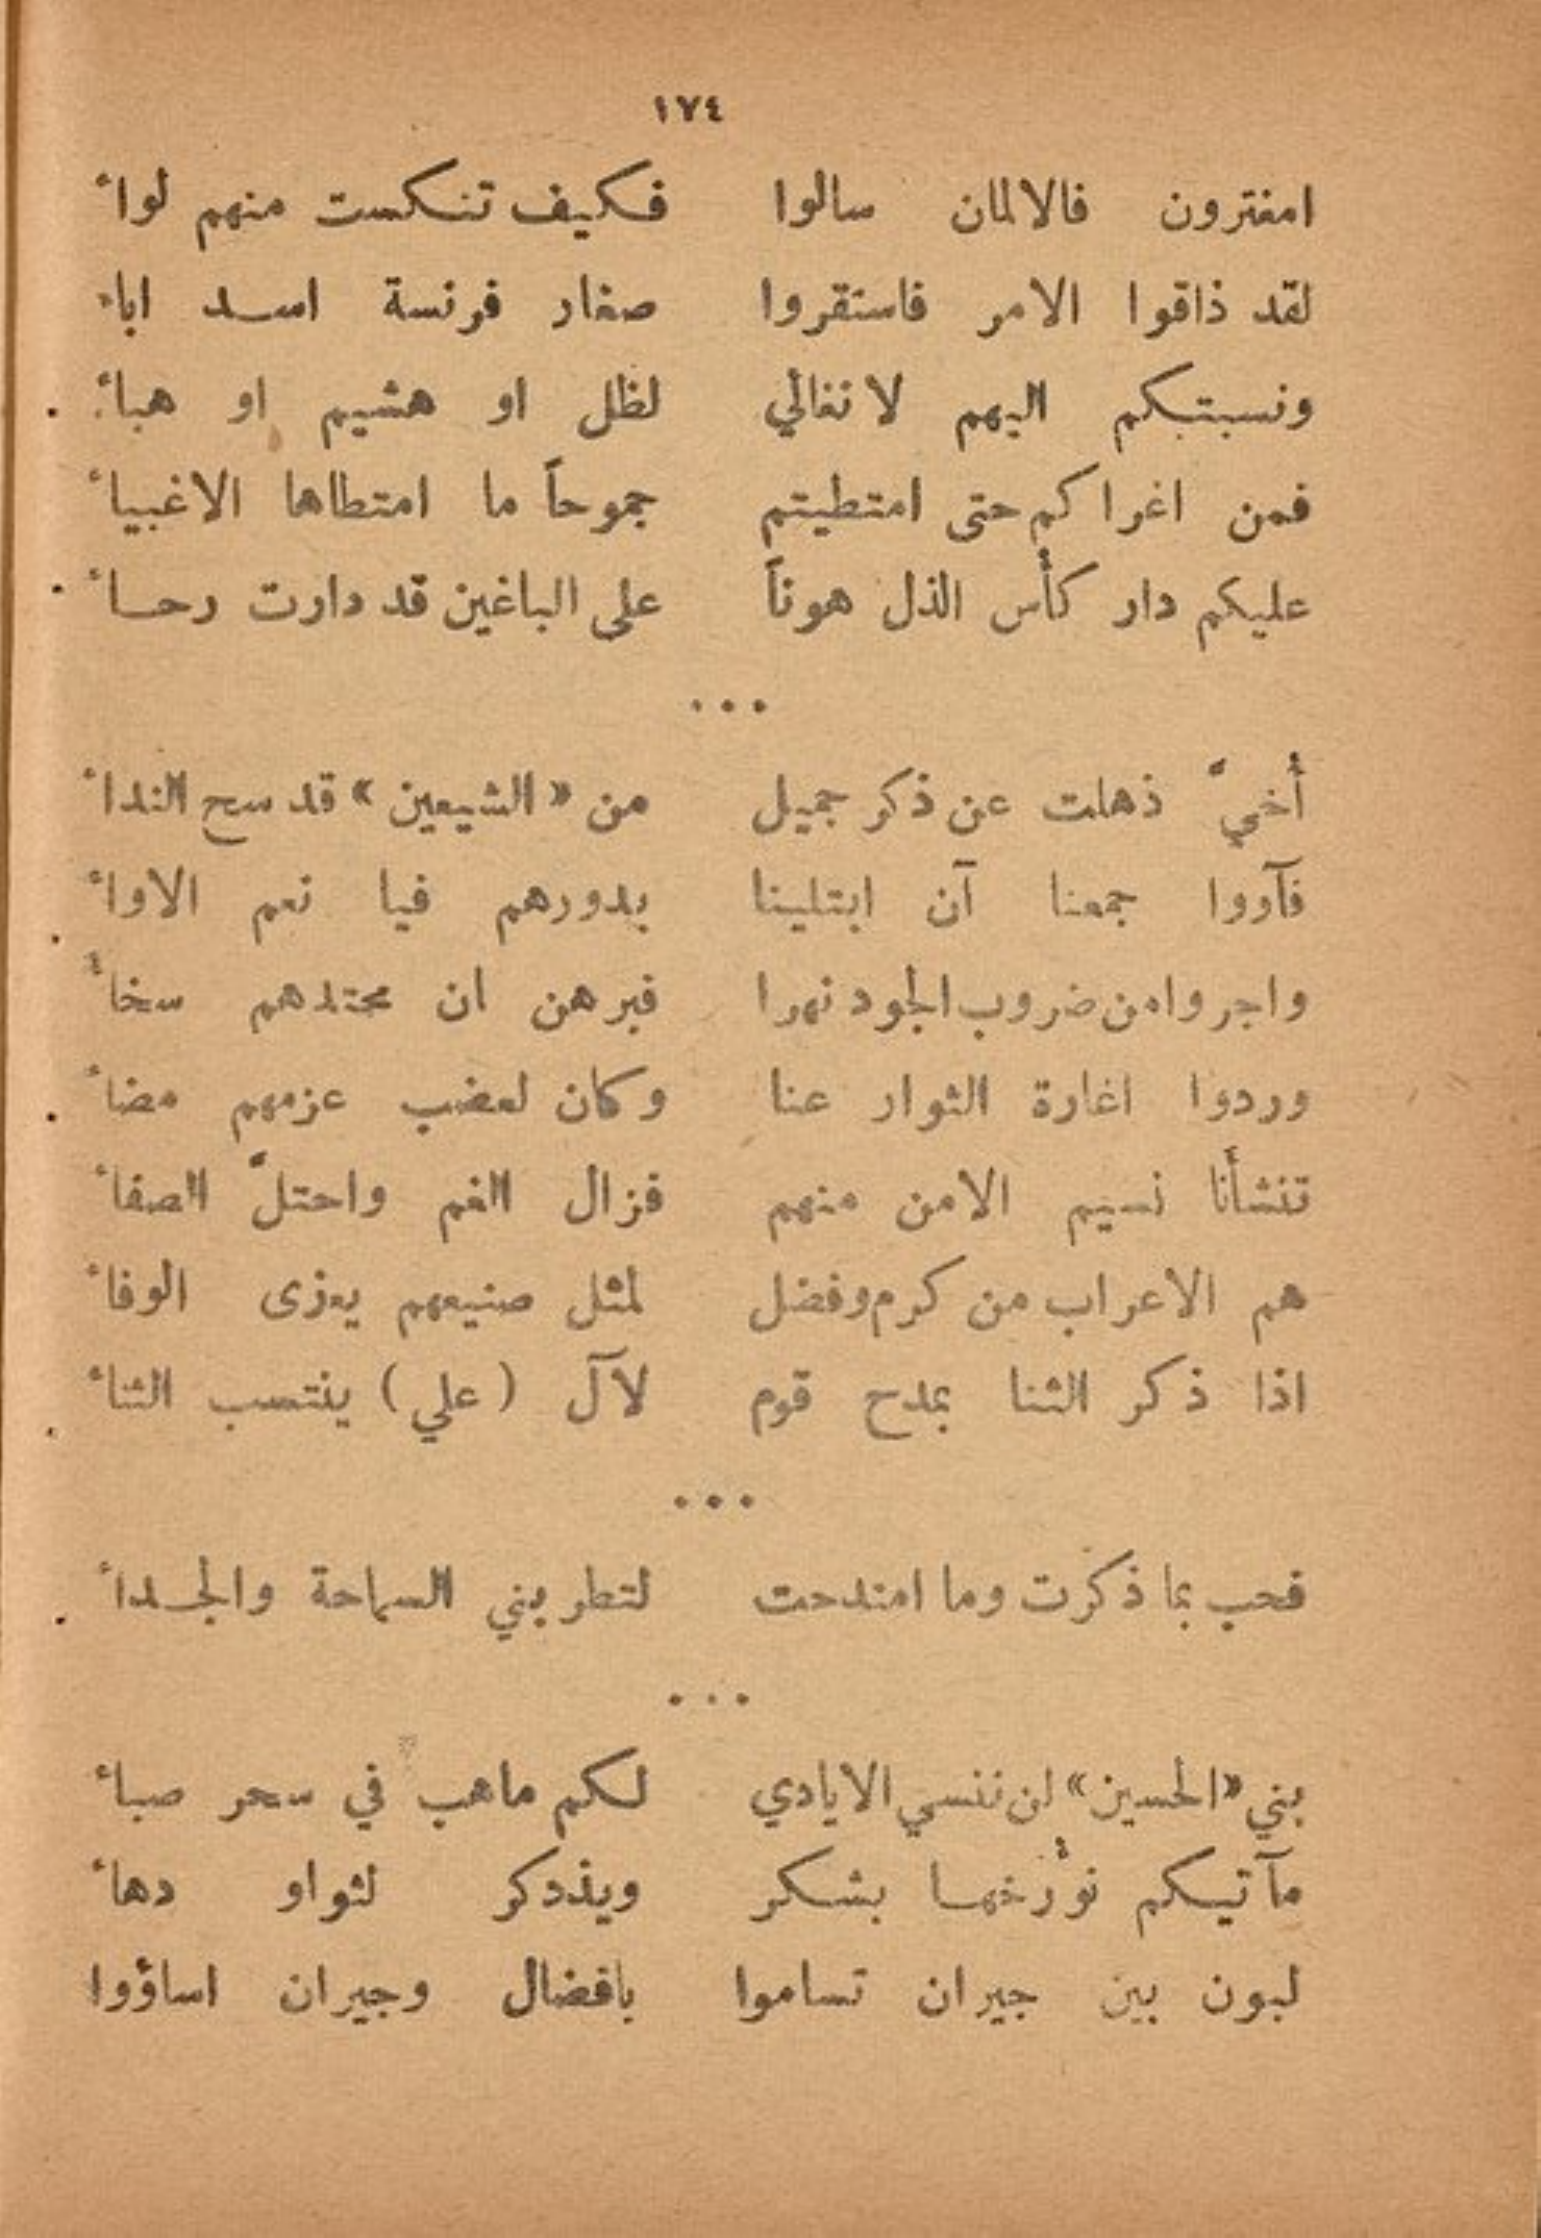 ١٧٤
امغترون فالالمان سالوا فكيف تنكست منهم لواءُ
لقد ذاقوا الامر فاستقروا صغار فرنسة اسد اباء
ونسبتكم اليهم لا تغالي لظل او هشيم او هباءُ
فمن اغراكم حتى امتطيتم جموحاً ما امتطاها الاغبياءُ
عليكم دار كأس الذل هوناً على الباغين قد دارت رحاءُ
...
أُخيَّ ذهلت عن ذكر جميل من « الشيعين » قد سح النداءُ
فآووا جمعنا آن ابتلينا بدورهم فيا نعم الاواءُ
واجروا من ضروب الجود نهرا فبرهن ان محتدهم سخاءُ
وردوا اغارة الثوار عنا وكان لعضب عزمهم مضاءُ
تنشأنا نسيم الامن منهم فزال الغم واحتلَّ الصفاءُ
هم الاعراب من كرم وفضل لمثل صنيعهم يعزى الوفاءُ
اذا ذكر الثنا بمدح قوم لآل ( علي ) ينتصب الثناءُ
...
فحب بما ذكرت وما امتدحت لتطر بني السماحة والجداءُ
...
بني «الحسين» لن ننسي الايادي لكم ماهب في سحر صباءُ
مآتيكم نؤرخها بشكر ويذدكر لثواو دهاءُ
لبون بين جيران تساموا بافضال وجيران اساؤوا